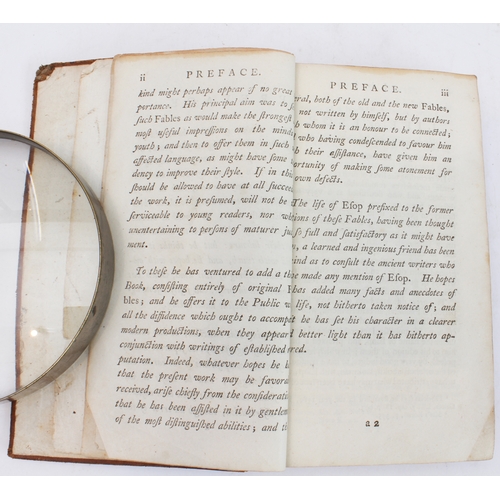 ii PREFACE.
kind might perhaps appear of no great
portance. His principal aim was to
such Fables as would make the strongest
most useful impressions on the minds
youth; and then to offer them in such
affected language, as might have some
dency to improve their style. If in this
ſhould be allowed to have at all succee
the work, it is presumed, will not be
serviceable to young readers, nor
unentertaining to persons of maturer
ment.
To these he has ventured to add a
Book, consisting entirely of original
bles; and he offers it to the Public
all the diffidence which ought to accompa
modern productions, when they appear
conjunction with writings of established
putation. Indeed, whatever hopes he
that the present work may be favora
received, arise chiefly from the consideratio
that he has been assisted in it by gentlem
of the most distinguished abilities; and
PREFACE. iii
eral, both of the old and the new Fables,
not written by himself, but by authors
whom it is an honour to be connected;
who having condescended to favour him
their assistance, have given him an
ortunity of making some atonement for
own defects.
The life of Esop prefixed to the former
ions of these Fables, having been thought
so full and satisfactory as it might have
n, a learned and ingenious friend has been
ind as to consult the ancient writers who
made any mention of Esop. He hopes
has added many facts and anecdotes of
life, not hitherto taken notice of; and
he has set his character in a clearer
better light than it has hitherto ap-
red.
a 2